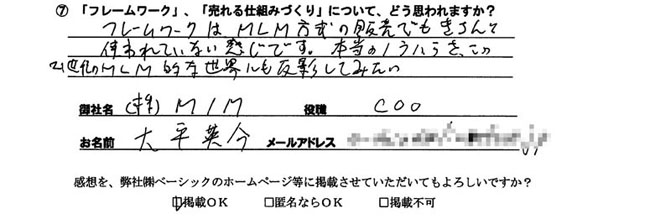 ⑦ 「フレームワーク」、「売れる仕組みづくり」について、どう思われますか？
フレームワークはMLM方式の販売でもきちんと
使われていない感じです。本当のノウハウを、この
MLM的な世界にも反影してみたい
御社名 (株) MIM 役職 COO
お名前 大平英今 メールアドレス
感想を、弊社㈱ベーシックのホームページ等に掲載させていただいてもよろしいですか？
☑掲載OK □匿名ならOK □掲載不可